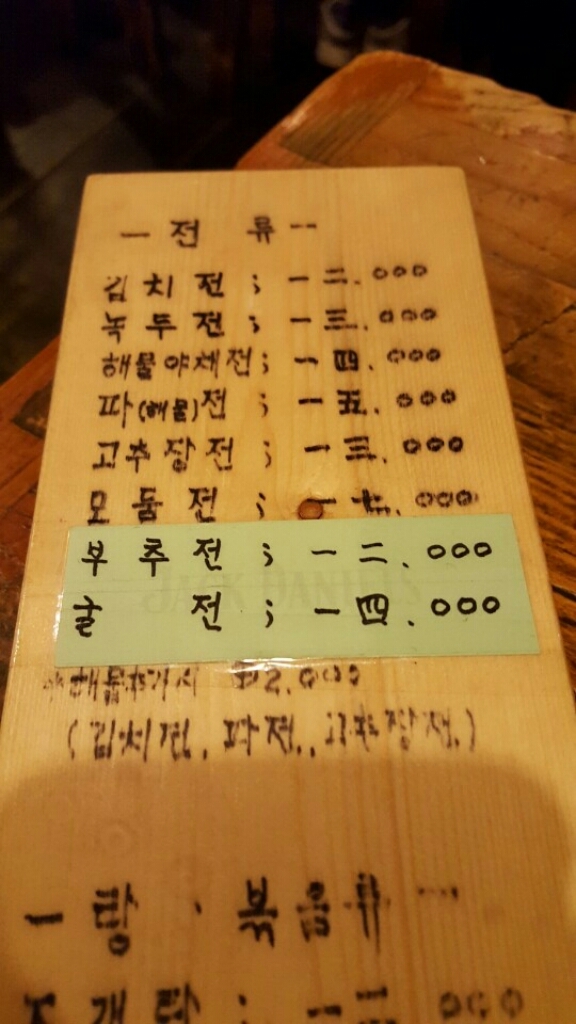 一 전 류 一
김치전 ; 一二.000
녹두전 ; 一三.000
해물야채전 ; 一四.000
파(해물)전 ; 一五.000
고추장전 ; 一三.000
모둠전 ; 一七.000
부추전 ; 一二.000
굴 전 ; 一四.000
JACK DANIEL'S
*해물추가시 ₩2.000
(김치전, 파전, 고추장전.)
一 탕 · 볶음류 一
조개탕 ; 一三.000